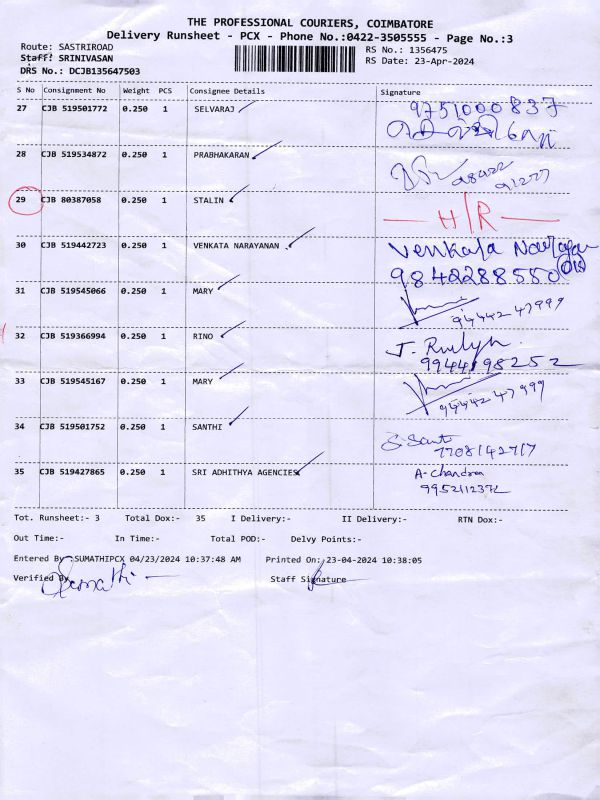 THE PROFESSIONAL COURIERS, COIMBATORE
Delivery Runsheet - PCX - Phone No.:0422-3505555 - Page No.:3
Route: SASTRIROAD
RS No.: 1356475
Staff: SRINIVASAN
RS Date: 23-Apr-2024
DRS No.: DCJB135647503
S No Consignment No Weight PCS Consignee Details Signature
27 CJB 519501772 0.250 1 SELVARAJ 9751000837
28 CJB 519534872 0.250 1 PRABHAKARAN
29 CJB 80387058 0.250 1 STALIN H/R
30 CJB 519442723 0.250 1 VENKATA NARAYANAN Venkata
9842288550
31 CJB 519545066 0.250 1 MARY
94442 47999
32 CJB 519366994 0.250 1 RINO J.
9944198252
33 CJB 519545167 0.250 1 MARY
94442 47999
34 CJB 519501752 0.250 1 SANTHI
7708142717
35 CJB 519427865 0.250 1 SRI ADHITHYA AGENCIES A-Chandra
Tot. Runsheet:- 3 Total Dox:- 35 I Delivery:- II Delivery:- RTN Dox:-
Out Time:- In Time:- Total POD:- Delvy Points:-
Entered By SUMATHIPCX 04/23/2024 10:37:48 AM Printed On: 23-04-2024 10:38:05
Verified By Staff Signature